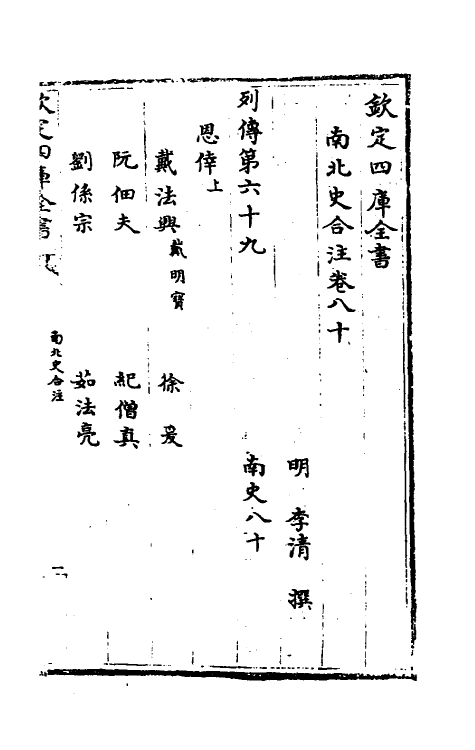 欽定四庫全書
南北史合注卷八十
明 李清 撰
列傳第六十九 南史八十
恩倖上
戴法興戴明寶 徐爰
阮佃夫 紀僧真
劉係宗 茹法亮
欽定四庫全書
南北史合注
一